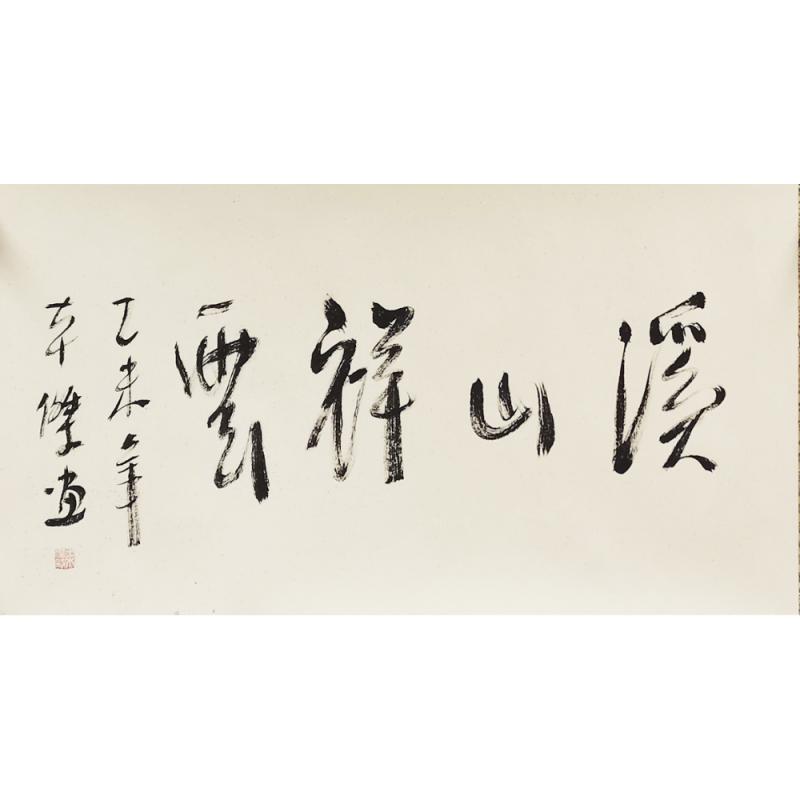 溪山祥雲
乙未年
傑